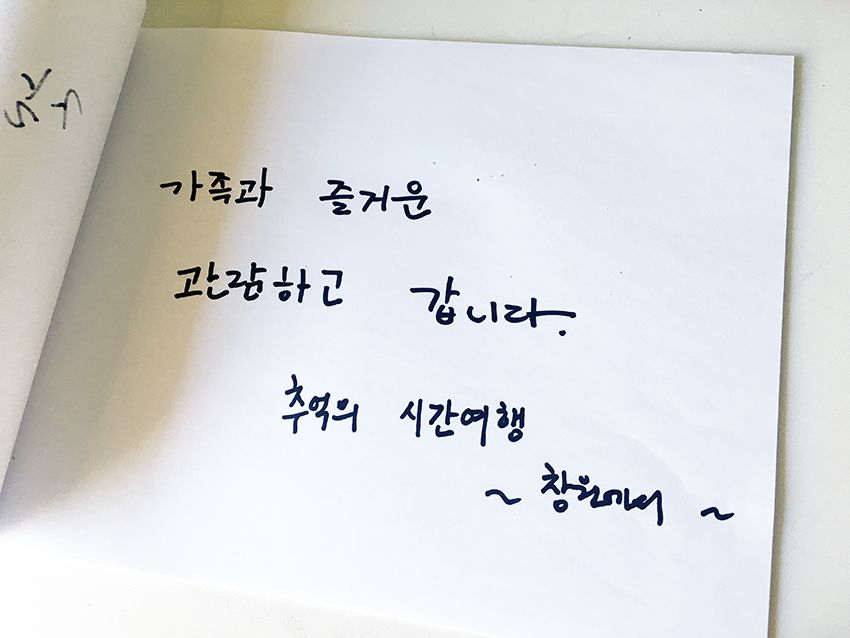 가족과 즐거운
관람하고 갑니다.
추억의 시간여행
~ 창원에서 ~